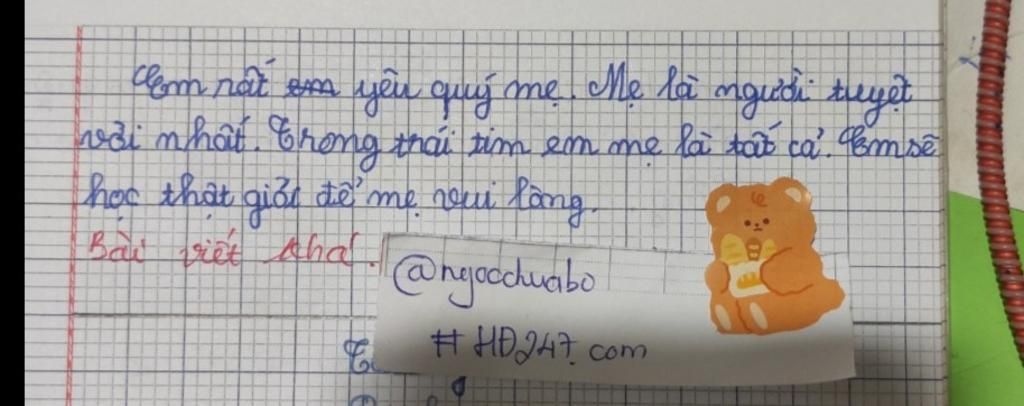 Em rất em yêu quý mẹ. Mẹ là người tuyệt
vời nhất. Trong trái tim em mẹ là tất cả. Em sẽ
học thật giỏi để mẹ vui lòng.
Bài viết khá.
@ngocchuabo
# HĐ247.com